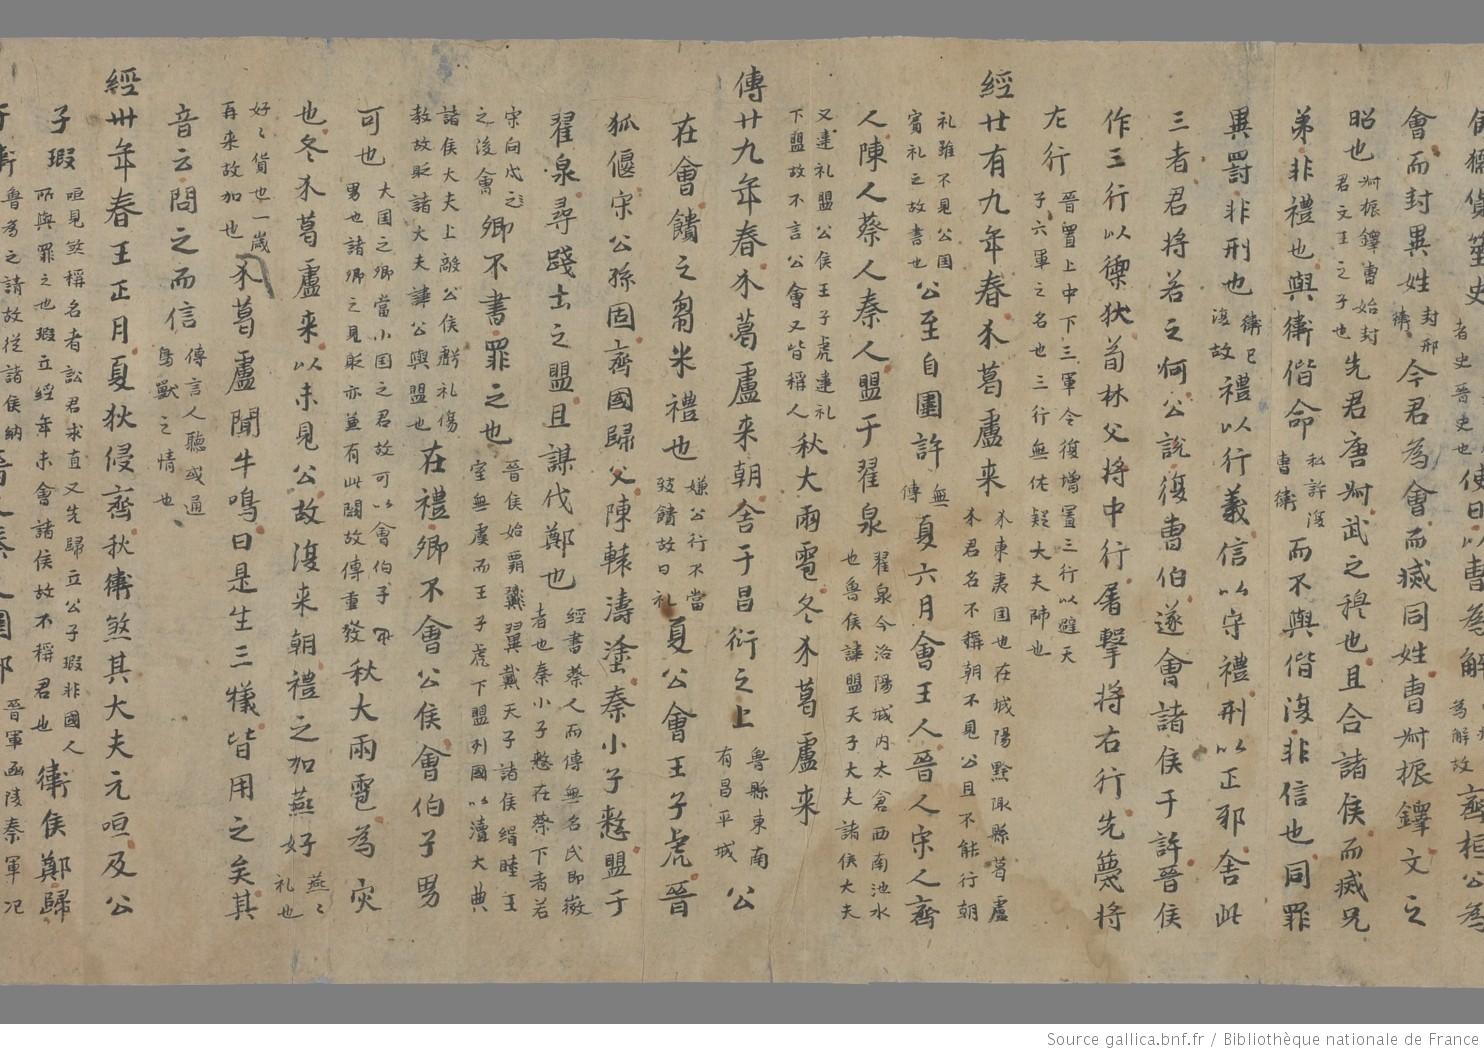 侯獳貨筮史者史晋史也使曰以曹為解為解故齊桓公為
會而封異姓封邢衛今君為會而滅同姓曹𠦑振鐸文之
昭也𠦑振鐸曹始封君文王之子也先君唐𠦑武之穆也且合諸侯而滅兄
弟非禮也與衛偕命私許復曹衛而不與偕復非信也同罪
異罰非刑也衛已復故禮以行義信以守禮刑以正邪舍此
三者君将若之何公說復曹伯遂會諸侯于許晉侯
作三行以禦狄荀林父将中行屠擊将右行先蔑将
左行晉置上中下三軍今復增置三行以避天子六軍之名也三行無佐疑大夫帥也
經廿有九年春介葛盧来介東夷国也在城陽黔陬縣葛盧介君名不稱朝不見公且不能行朝
礼雖不見公国賓礼之故書也公至自圍許無傳夏六月會王人晉人宋人齊
人陳人蔡人秦人盟于翟泉翟泉今洛陽城内太倉西南池水也魯侯諱盟天子大夫諸侯大夫
又違礼盟公侯王子虎違礼下盟故不言公會又皆稱人秋大雨雹冬介葛盧来
傳廿九年春介葛盧来朝舍于昌衍之上魯縣東南有昌平城公
在會饋之芻米禮也嫌公行不當致饋故曰礼夏公會王子虎晉
狐偃宋公孫固齊國歸父陳轅濤塗秦小子憖盟于
翟泉尋踐土之盟且謀伐鄭也經書蔡人而傳無名氏即微者也秦小子憖在蔡下者若
宋向戌之後會卿不書罪之也晉侯始霸翼戴天子諸侯緝睦王室無虞而王子虎下盟列國以瀆大典
諸侯大夫上敵公侯虧礼傷教故貶諸大夫諱公與盟也在禮卿不會公侯會伯子男
可也大国之卿當小国之君故可以會伯子男也諸卿之見貶亦兼有此闕故傳重發秋大雨雹為灾
也冬介葛盧来以未見公故復来朝禮之加燕好燕〻礼也
好〻貨也一歲再来故加也介葛盧聞牛鳴曰是生三犧皆用之矣其
音云問之而信傳言人聽或通鳥獸之情也
經卅年春王正月夏狄侵齊秋衛煞其大夫元咺及公
子瑕咺見煞稱名者訟君求直又先歸立公子瑕非國人所與罪之也瑕立經年未會諸侯故不稱君也衛侯鄭歸
于衛魯為之請故從諸侯納晉人秦人圍鄭晉軍函陵秦軍氾
Source gallica.bnf.fr / Bibliothèque nationale de France